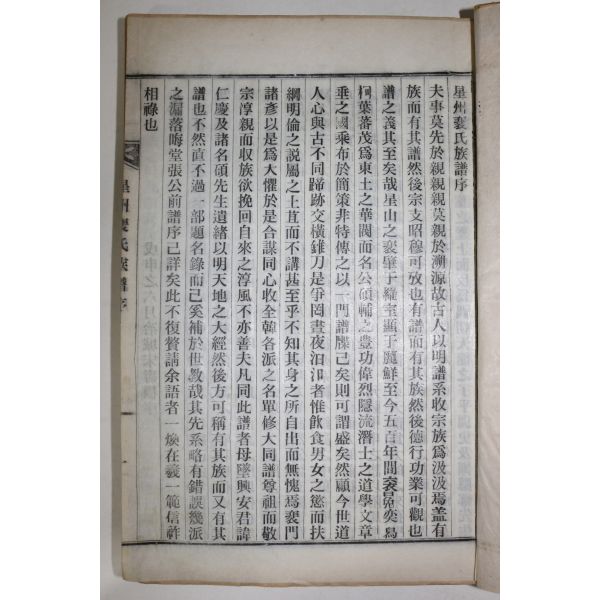 星州裵氏族譜序
夫事莫先於親親親莫親於溯源故古人以明譜系收宗族爲汲汲焉盖有
族而有其譜然後宗支昭穆可攷也有譜而有其族然後德行功業可觀也
譜之義其至矣哉星山之裵肇于羅至顯于麗鮮至今五百年間袞冕奕舄
柯葉蕃茂爲東土之華閥而名公碩輔之豊功偉烈隱流潛士之道學文章
垂之國乘布於簡策非特傳之以一門譜牒已矣則可謂盛矣然顧今世道
人心與古不同歸跡交橫錐刀是爭罔晝夜汨汨者惟飮食男女之慾而扶
綱明倫之說屬之土苴而不講甚至乎不知其身之所自出而無愧焉裵門
諸彥以是爲大懼於是合謀同心收全韓各派之名單修大同譜尊祖而敬
宗淳親而收族欲挽回自來之淳風不亦善夫凡同此譜者母墜興安君諱
仁慶及諸名碩先生遺緖以明天地之大經然後方可稱有其族而又有其
譜也不然直不過一部題名錄而已奚補於世敎哉其先系略有錯誤幾派
之漏落晦堂張公前譜序已詳矣此不復贅請余語者一煥在羲一範信祚
相祿也
星州裵氏族譜序
一